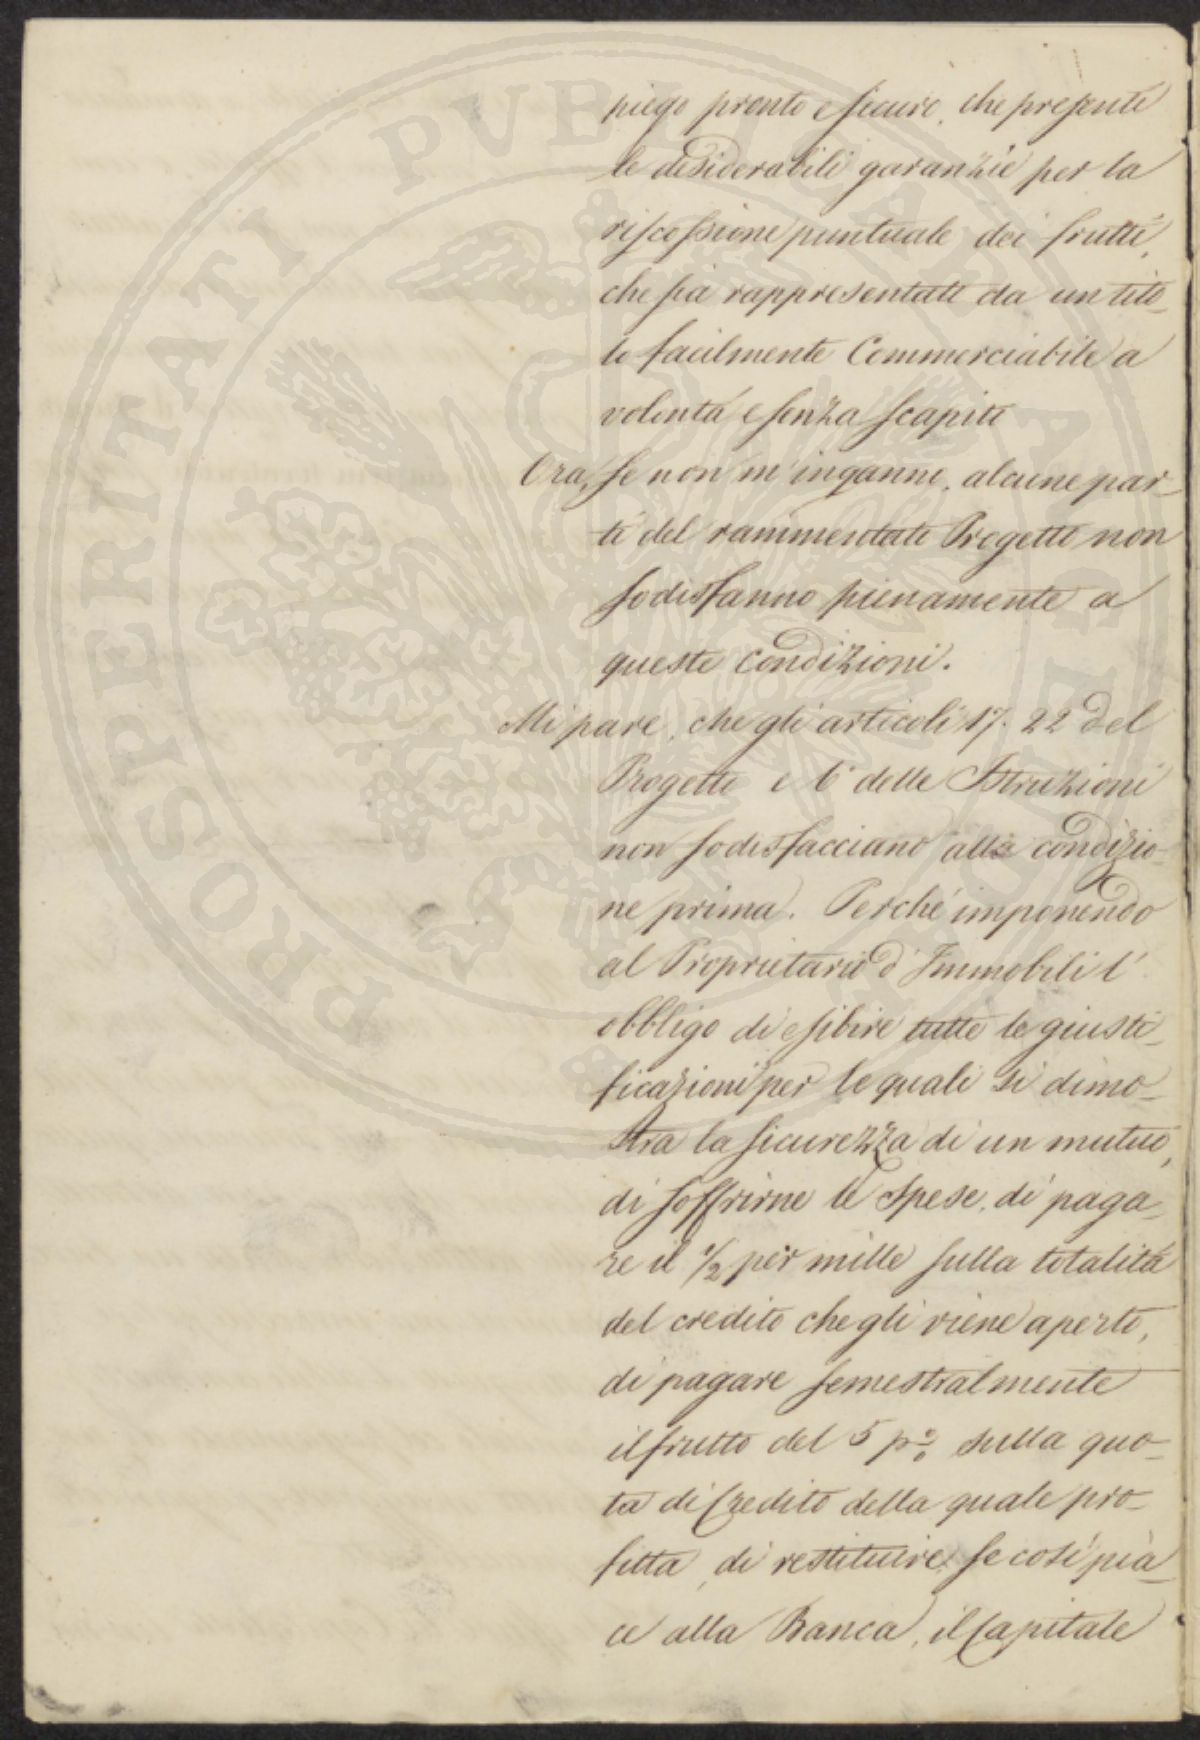 piego pronto e sicuro, che presenti
le desiderabili garanzie per la
riscossione puntuale dei frutti,
che sia rappresentato da un tito_
lo facilmente Commerciabile a
volontá e senza scapito
Ora, se non m'inganno, alcune par_
ti del rammentato Progetto non
sodisfanno pienamente a
queste condizioni.
Mi pare, che gli articoli 17. 22 del
Progetto e 6° delle Istruzioni
non sodisfacciano alla condizio_
ne prima. Perché imponendo
al Proprietario d'Immobili l'
obbligo di esibire tutte le giusti_
ficazioni per le quali si dimo_
stra la sicurezza di un mutuo,
di soffrirne le spese, di paga_
re il 1/2 per mille sulla totalitá
del credito che gli viene aperto,
di pagare semestralmente
il frutto del 5 p% sulla quo_
ta di Credito della quale pro_
fitta, di restituire se cosí pia_
ce alla Banca, il Capitale
PROSPERITATI PVBLICAE AVGENDAE